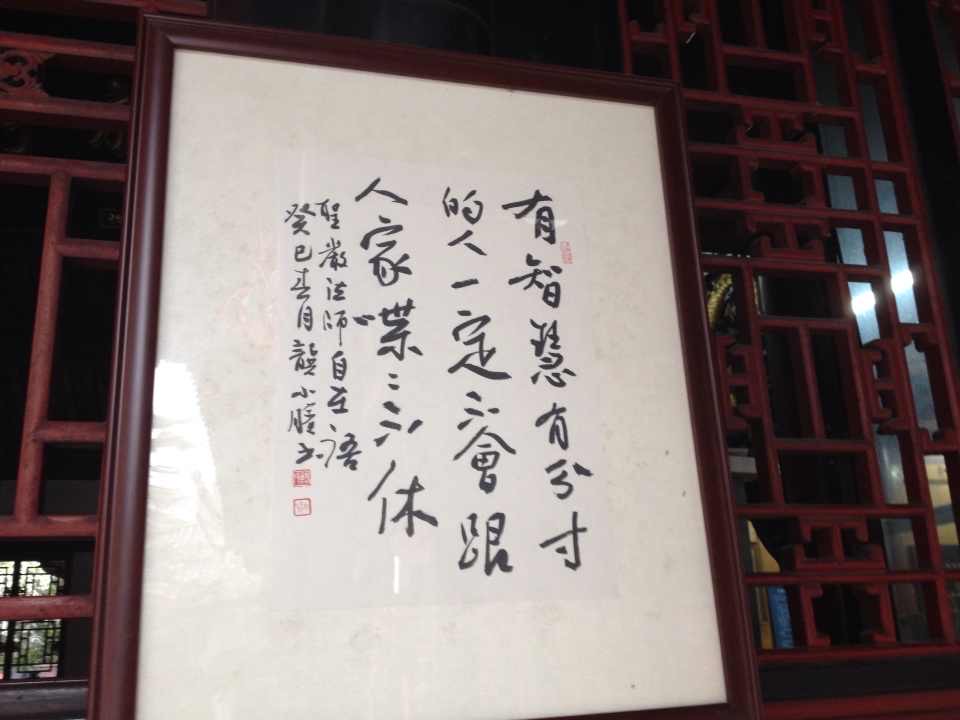 有智慧有分寸
的人一定不會跟
人家喋喋不休
聖嚴法師自在語
癸巳春月龔小騰书